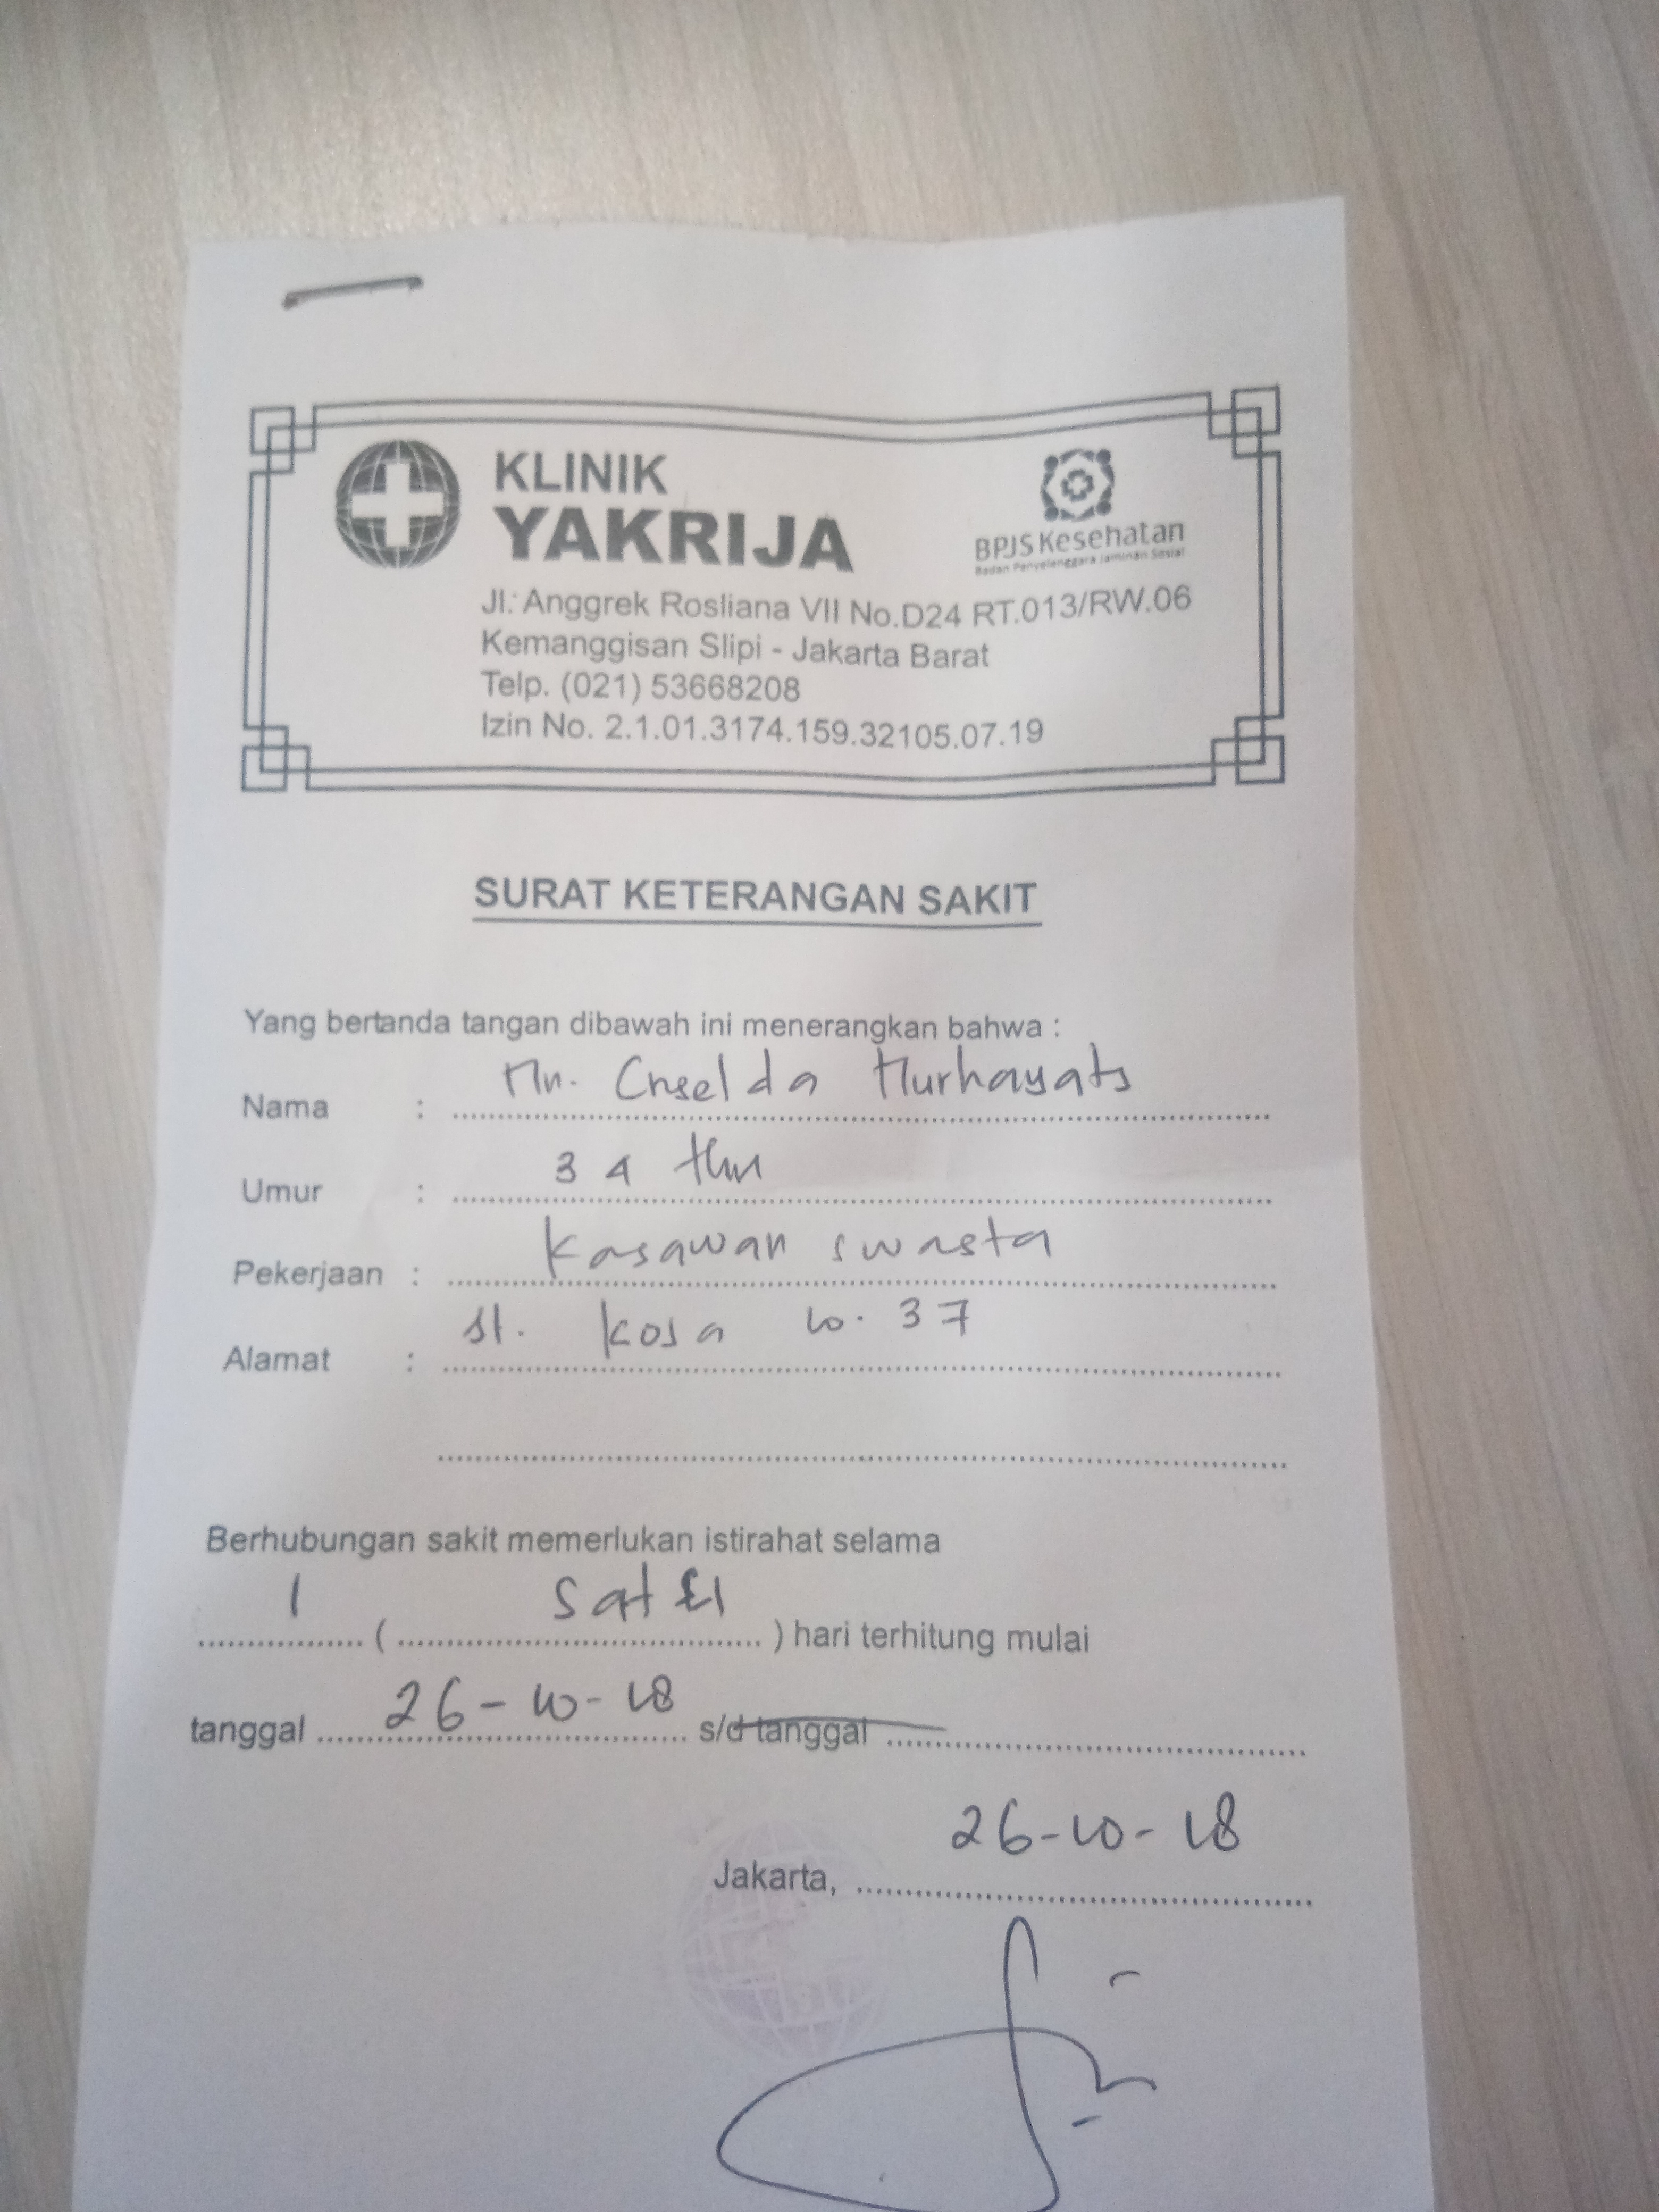 KLINIK
YAKRIJA
BPJS Kesehatan
Badan Penyelenggara Jaminan Sosial
Jl. Anggrek Rosliana VII No.D24 RT.013/RW.06
Kemanggisan Slipi - Jakarta Barat
Telp. (021) 53668208
Izin No. 2.1.01.3174.159.32105.07.19
SURAT KETERANGAN SAKIT
Yang bertanda tangan dibawah ini menerangkan bahwa :
Nama :
Umur : 34 thn
Pekerjaan : swasta
Alamat : 37
Berhubungan sakit memerlukan istirahat selama
1 ( satu ) hari terhitung mulai
tanggal 26-10-18 s/d tanggal
Jakarta, 26-10-18